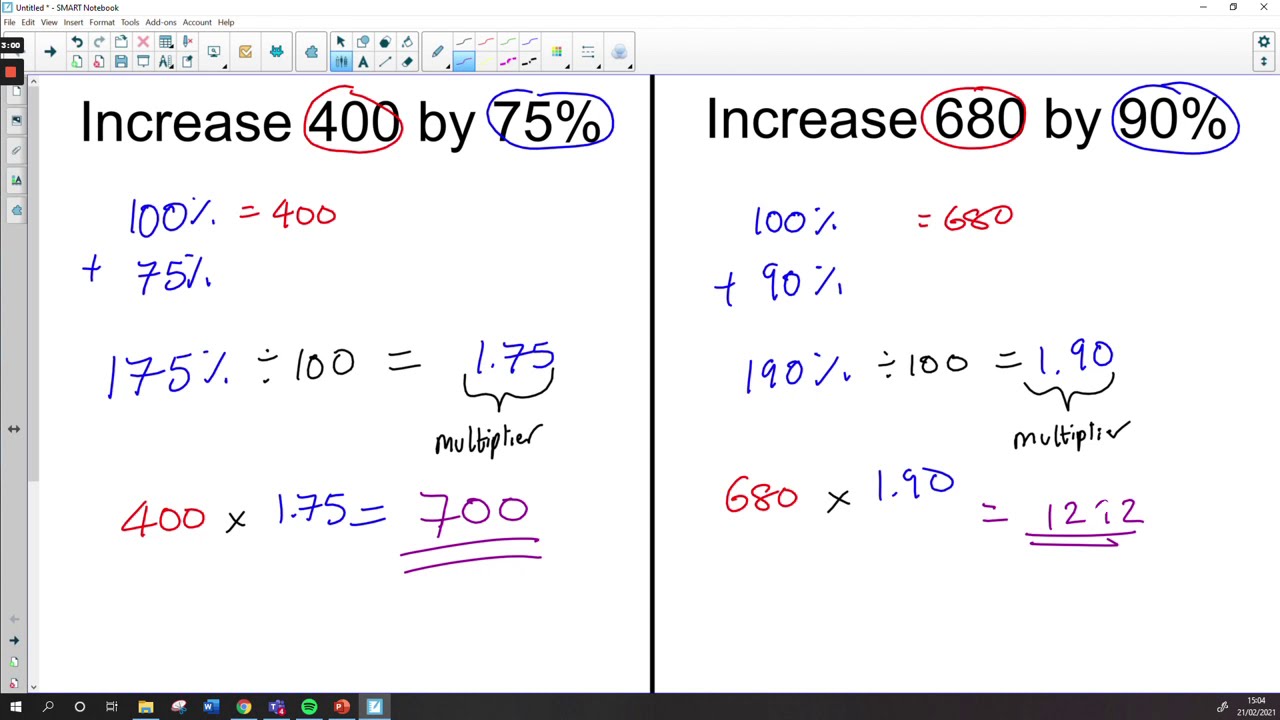 Untitled * - SMART Notebook
File Edit View Insert Format Tools Add-ons Account Help
3:00
Increase 400 by 75%
100% = 400
+ 75%
175% ÷ 100 = 1.75
multiplier
400 × 1.75 = 700
Increase 680 by 90%
100% = 680
+ 90%
190% ÷ 100 = 1.90
multiplier
680 × 1.90 = 12
15:04
21/02/2021